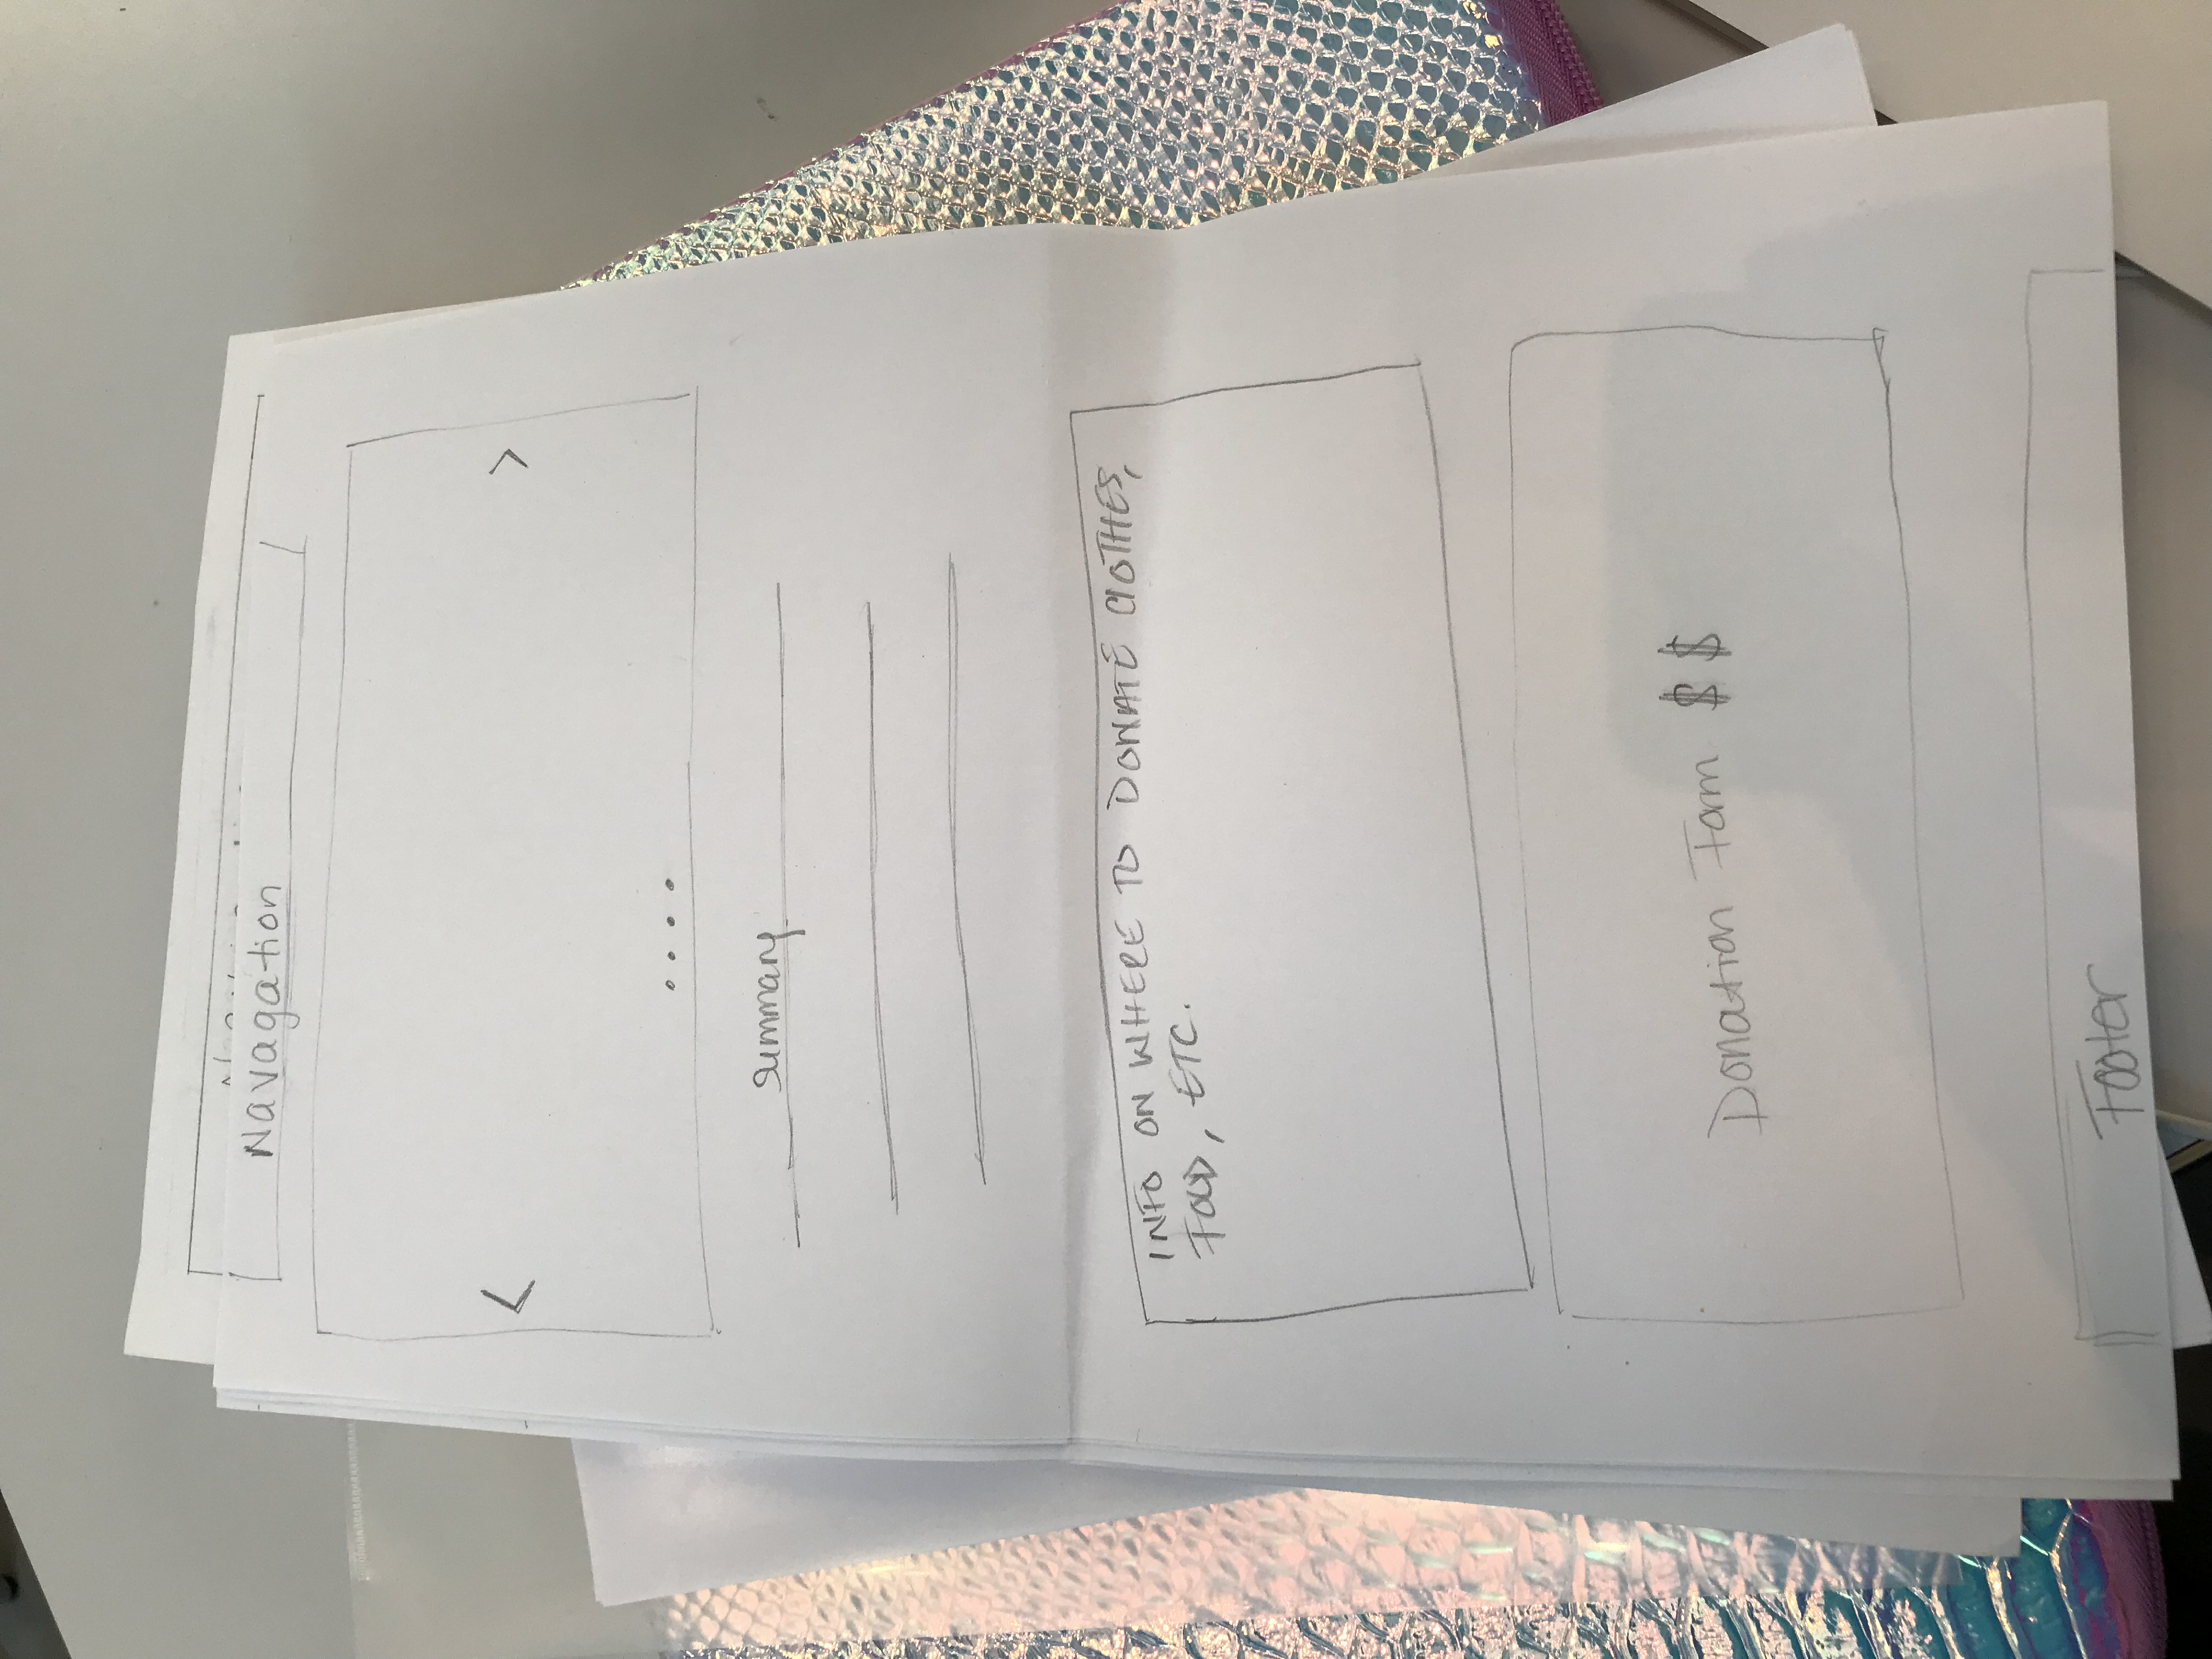 Navagation
<
>
summary
INFO ON WHERE TO DONATE CLOTHES,
FOOD, ETC.
Donation Form $ $
Footer